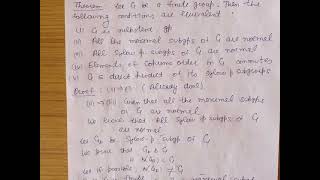 Theorem Let G be a finite group. Then the
following conditions are equivalent
(i) G is nilpotent gp
(ii) All the maximal subgps of G are normal
(iii) All Sylow p subgps of G are normal
(iv) Elements of Coprime order in G commutes
(v) G is direct product of its Sylow p subgroups
Proof: (i)→(ii) (Already done)
(ii)→(iii) Given that all the maximal subgps
of G are normal
We prove that All Sylow p subgps of G
are normal
Let Gp be Sylow p subgp of G
We prove that Gp Δ G
N(Gp) = G
If possible, N(Gp) ≠ G
maximal